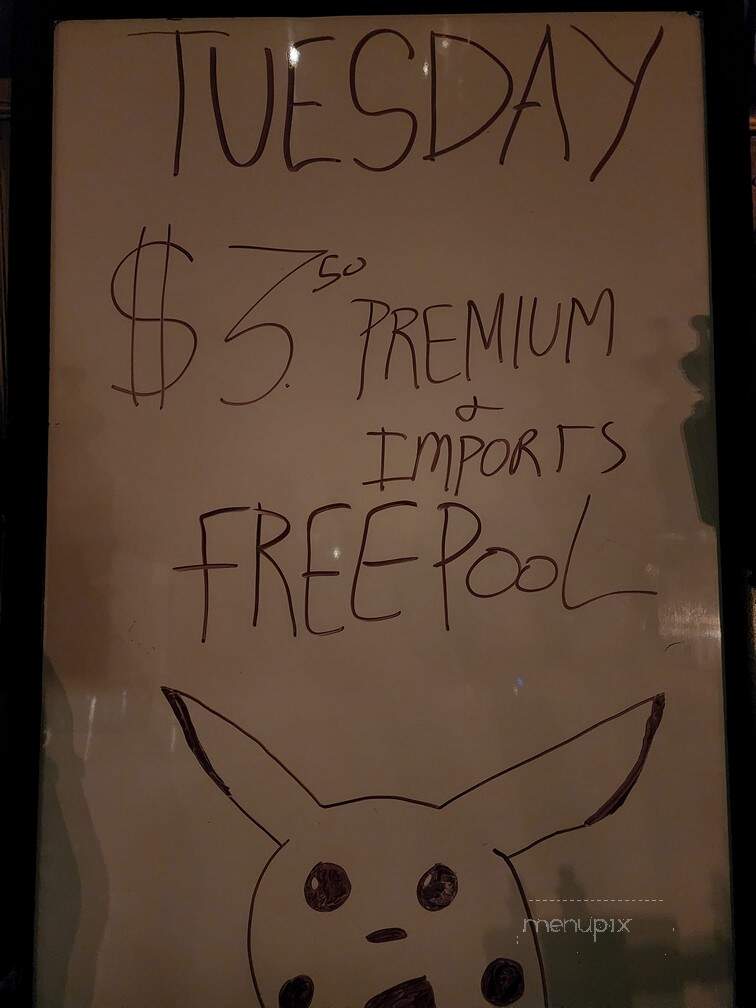 TUESDAY
$3.50 PREMIUM
&
IMPORTS
FREE POOL
menupix